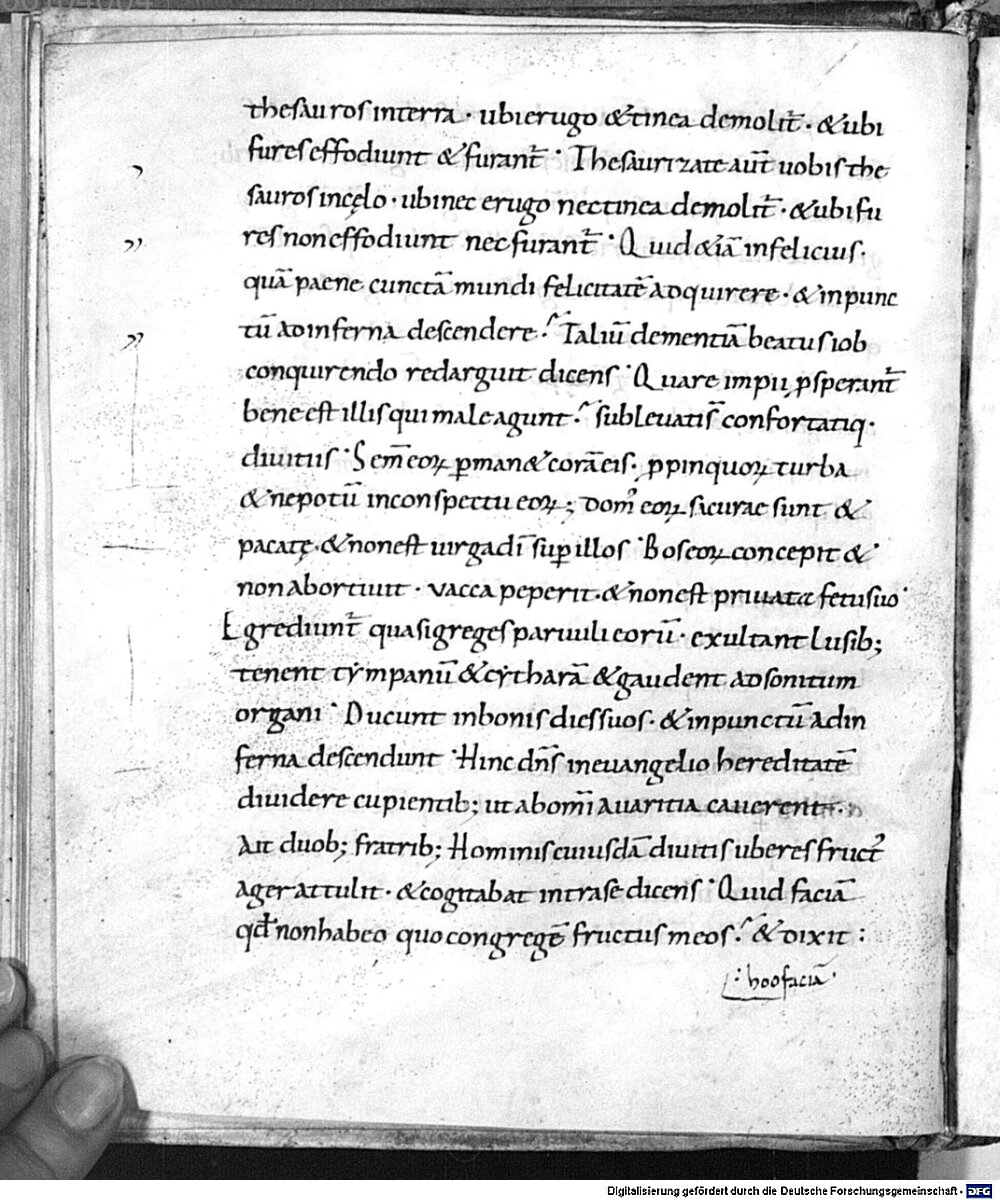 thesauros in terra · ubi erugo & tinea demolit̄ · & ubi
fures effodiunt & furant̄ · Thesaurizate aūt uobis the
sauros in cęlo · ubi nec erugo nec tinea demolit̄ · & ubi fu
res non effodiunt nec furant̄ · Quid &iā infelicius ·
quā paene cunctā mundi felicitatē adquirere · & in punc
tū ad inferna descendere · Taliū dementiā beatus iob
conquirendo redarguit dicens · Quare impii ꝓsperant̄
bene est illis qui male agunt · subleuati s̄ confortatiq ·
diuitiis · Sem̄ eoꝝ ꝑman& corā eis · ꝓpinquoꝝ turba
& nepotū in conspectu eoꝝ ; domꝰ eoꝝ sicurae sunt &
pacatę · & non est uirga dī suꝑ illos · Bos eoꝝ concepit &
non abortiuit · vacca peperit · & non est priuata fetu suo ·
Egrediunt̄ quasi greges paruuli eorū · exultant lusib;
tenent tẏmpanū & cẏtharā & gaudent ad sonitum
organi · Ducunt in bonis dies suos · & in punctū ad in
ferna descendunt · Hinc dn̄s in euangelio hereditatē
diuidere cupientib; ut ab om̄i auaritia cauerent ·
Ait duob; fratrib; Hominis cuiusdā diuitis uberes fructꝰ
ager attulit · & cogitabat intra se dicens · Quid faciā
qđ non habeo quo congregē fructus meos · & dixit :
: hoc faciā ·
Digitalisierung gefördert durch die Deutsche Forschungsgemeinschaft - DFG